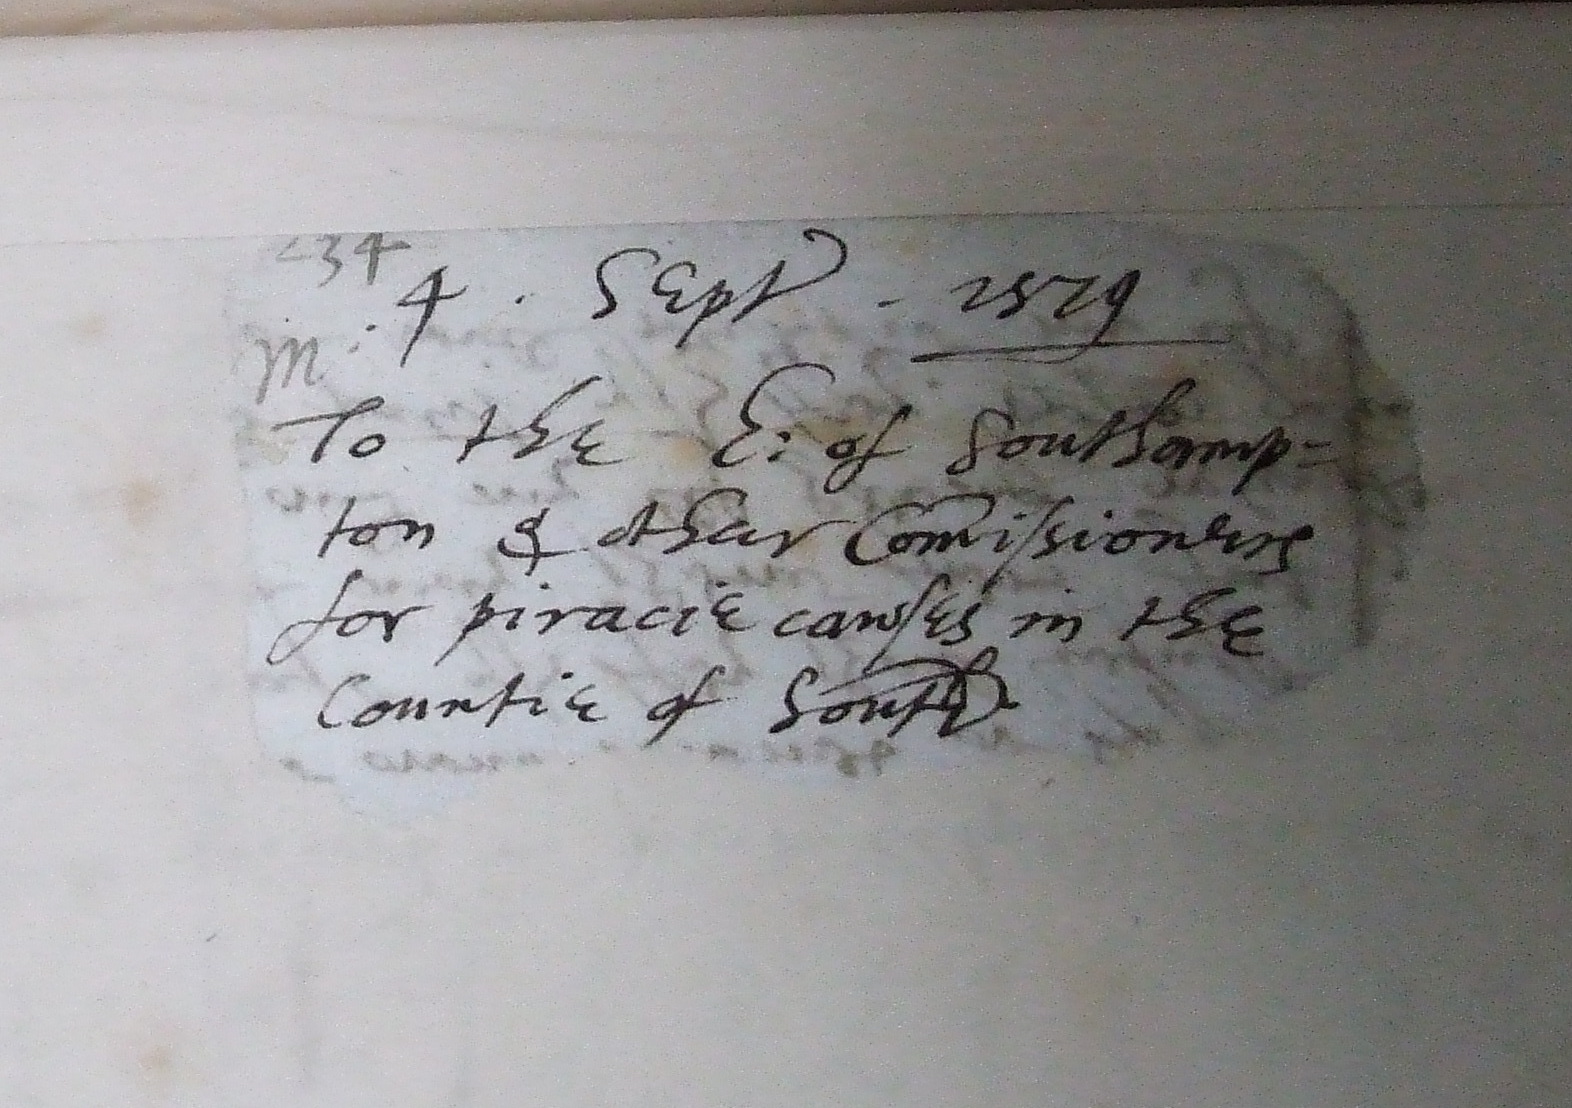 234
4 . Sept . 1579
M:
To the E: of Southamp=
ton & other Comissioners
for piracie causes in the
Countie of South